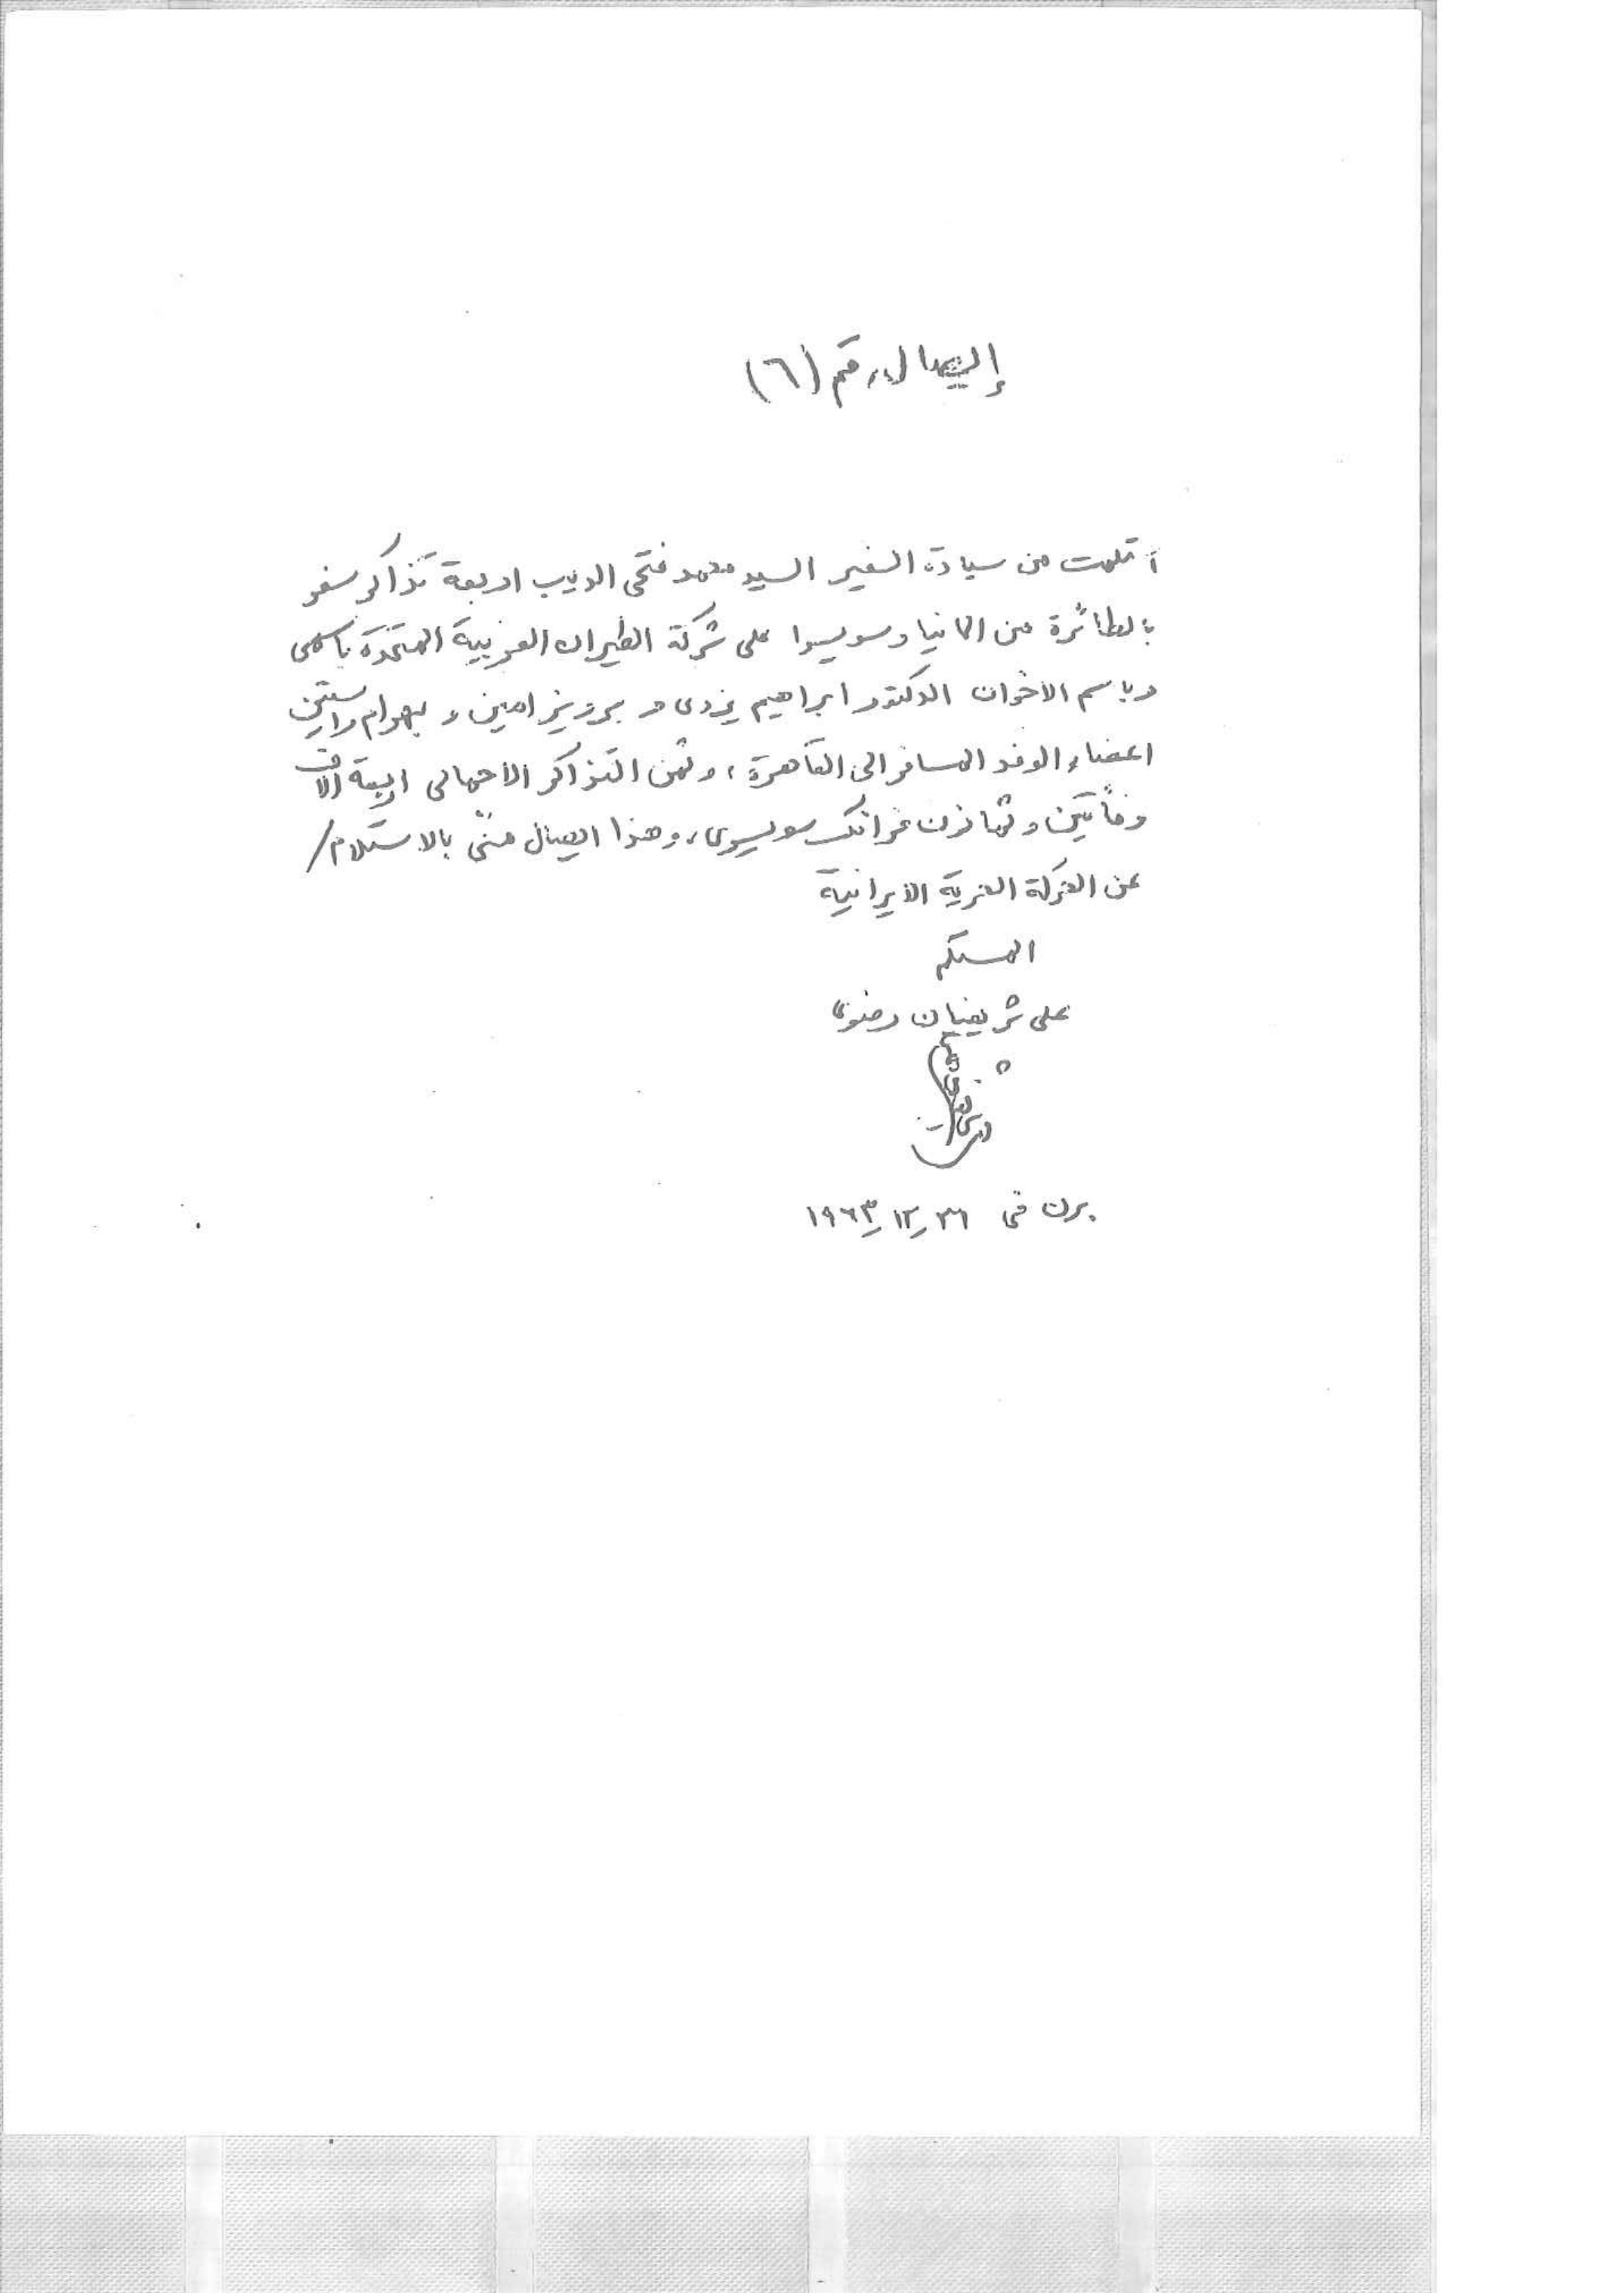 إلیصال رقم (٦)
استلمت من سيادة السفير السيد محمد فتحى الديب اربعة تذاكر سفر
بالطائرة من المانيا وسويسرا على شركة الطيران العربية المتحدة باسمى
وباسم الاخوان الدكتور ابراهيم يزدى و برويز امين و بهرام راستين
اعضاء الوفد المسافر الى القاهرة، وثمن التذاكر الاجمالى اربعة آلاف
ومأتين وثمانون فرانك سويسرى، وهذا ايصال منّى بالاستلام/
عن الحركة الحرية الايرانية
المستلم
على شريفيان رضوى
برن فى ٣١ ر ١٢ ر ١٩٦٣